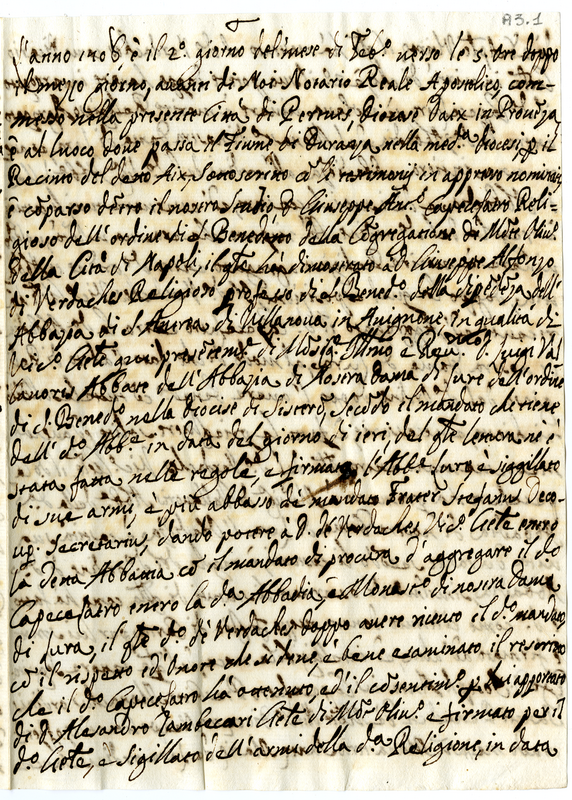 A3.1
L'anno 1706 è il 2º giorno del mese di Feb.º verso le 3 ore doppo
il mezo giorno, avanti di Noi Notario Reale Apostolico, com-
messo nella presente Città di Pertuis, Diocese d'Aix in Provenza
è al luoco dove passa il fiume di Duranza nella med.ª diocesi, p. il
Recinto del detto Aix sottoscritto co li testimonij in appresso nominati
è comparso dentro il nostro studio D. Giuseppe Capecelatro Reli-
gioso dell'ordine di S. Benedetto della Cogregatione di Mote Oliv.
della Città di Napoli, il qle hà dimostrato à D. Giuseppe Alfonzo
di Verdaches Religioso professo di S. Bened.º della dipedeza dell'
Abbazia di S. Andrea di Villanova in Avignone, in qualità di
Vic.º Gñle di Mosig. Illmo è Rev.mo D. Luigi Val
Abbate dell'Abbazia di Nostra Dama di Jure dell'ordine
di S. Bened.º nella diocise di Sistero, secodo il mandato che tiene
dell' d.º Abb.e in data del giorno di ieri, del qle
stata fatta nelle regole, è firmato l'Abb.e Jure è siggillato
di sue armi, è più abbasso dè mandato Frater Stefanus Deco-
up. Secretarius, dando potere à D. de Verdaches Vic.º Gñle
la detta Abbatia co il mandato di procura d'aggregare il d.º
Capecelatro la d.ª Abbadia è Monast.º di nostra Dama
di Jura, il qle d.º de Verdaches doppo avere ricevuto il d.º mandato,
co il rispetto ed'onore che si deve, è bene esaminato il rescritto
che il d.º Capecelatro hà ottenuto ed'il cosentim.º
di D. Alesandro Zambeccari Gñle di Mot Oliv.º è firmato per il
d.º Gñle, è sigillato dell'armi della d.ª Religione, in data